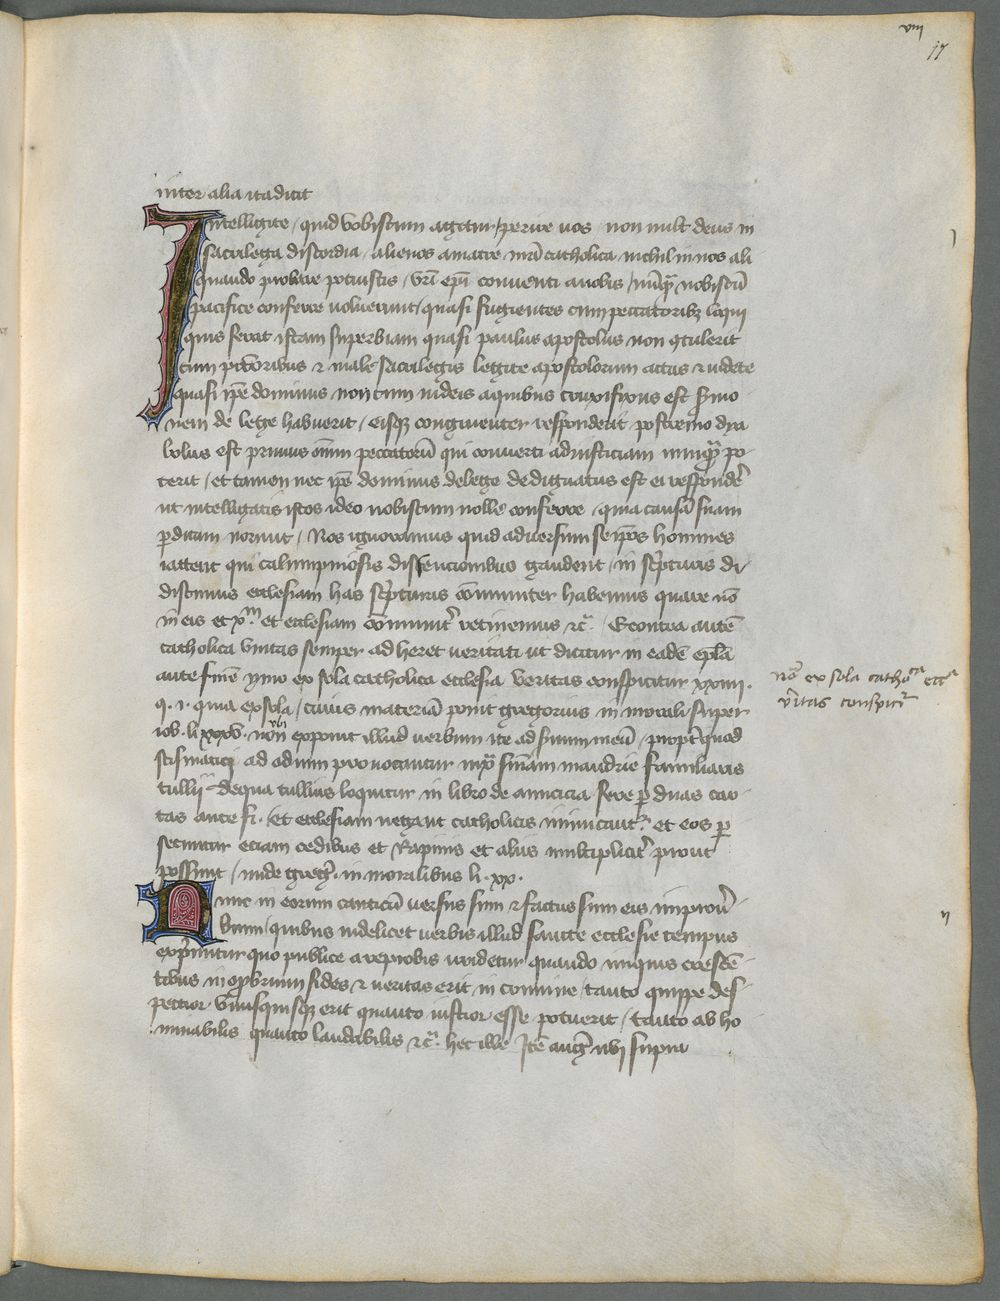 viij
17
inter alia ita dicit
Intelligite / quid vobiscum agitur / perire uos non uult deus in
sacrilega discordia / alienos a matre nr̄a catholica / nichil in nos ali
quando probare potuistis / vr̄i ep̄i conuenti a nobis / nūq̄ȝ nobiscū
pacifice conferre uoluerunt / quasi fugientes cum peccatoribȝ loqui
quis ferat istam superbiam quasi paulus apostolus non 9tulerit
cum pctōribus ⁊ male sacrilegis legite apostolorum actus ⁊ uidete
quasi ip̄e dominus non cum iudeis a quibus crucifixus est s̄mo
nem de lege habuerit / eisqȝ congruenter responderit postremo dya
bolus est primus oīm peccatorū qui conuerti ad iusticiam nunq̄ȝ po
terit / et tamen nec ip̄e dominus de lege dedignatus est ei respondēr
ut intelligatis istos ideo nobiscum nolle conferre / quia causā suam
ꝑditam norunt / Nos ignoramus quid aduersum se ip̄os homines
iactent qui calumpniosis dissencionibus gaudent / in sc̄pturis di
discimus ecclesiam has sc̄pturis cōmuniter habemus quare nō
in eis et xp̄m et ecclesiam cōmunit̄ retinemus ⁊c̄. / Econtra autē
catholica vnitas semper adheret ueritati ut dicitur in eadē ep̄la
ante finē ymo ex sola catholica ecclesia veritas conspicitur xxiiij.
q. 1. quia ex sola / cuius materiā ponit gregorius in morali super
iob. li xxxv. vbi exponit illud verbum ite ad seruum meū / propt̄ quod
scismatici ad odium prouocantur iuxͣ sn̄iam mandrie familiaris
tullii de qua tullius loquitur in libro de amicicia fere ꝑ duas car
tas ante fi. / Et ecclesiam negant catholicis inimicant̄ et eos ꝑ
secuntur eciam cedibus et Rapinis et aliis multiplicit̄ prout
possunt / unde greḡ. in moralibus li. xx.
Nunc in eorum canticū uersus sum ⁊ factus sum eis in prou̅
bium / quibus uidelicet uerbis illud sancte ecclesie tempus
exp̄mitur quo publice a reprobis irridetur quando iniquis crescē
tibus in opbrium fides ⁊ ueritas erit in crimine / tanto quippe des
pectior vnusquisqȝ erit quanto iustior esse potuerit / tanto abho
minabilis quanto laudabilis ⁊c̄. hec ille Itē aug̅ ubi supra
noͣ ex sola cathocͣ eccͣ
v̅itas conspicit̄